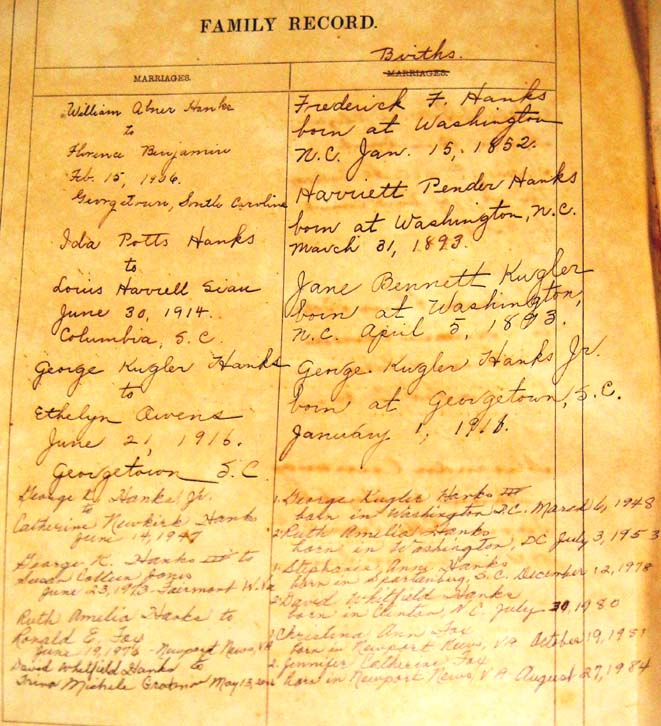 FAMILY RECORD.
MARRIAGES.
William Abner Hanks
to
Florence Benjamin
Feb. 15, 1906.
Georgetown, South Carolina
Ida Potts Hanks
to
Louis Harrell Siau
June 30, 1914.
Columbia, S.C.
George Kugler Hanks
to
Ethelyn Owens
June 21, 1916.
Georgetown S.C.
George K. Hanks Jr.
to
Catherine Newkirk Hanks
June 14, 1947
George K. Hanks III to
Susan Colleen Jones
June 23, 1973 - Fairmont W. Va
Ruth Amelia Hanks to
Ronald E. Fox
June 19, 1976 - Newport News, VA
David Whitfield Hanks to
Michele May 13,
Births.
MARRIAGES.
Frederick F. Hanks
born at Washington
N.C. Jan. 15, 1852.
Harriett Pender Hanks
born at Washington, N.C.
March 31, 1893.
Jane Bennett Kugler
born at Washington,
N.C. April 5, 1893.
George Kugler Hanks Jr.
born at Georgetown, S.C.
January 1, 1918.
1. George Kugler Hanks III
born in Washington D.C. March 6, 1948
2. Ruth Amelia Hanks
born in Washington, DC July 3, 1953
1. Stephanie Anne Hanks
born in Spartanburg, S.C. December 12, 1978
2. David Whitfield Hanks
born in Clinton N.C. July 30, 1980
1 Christina Ann Fox
born in Newport News, VA October 19, 1981
2. Jennifer Catherine Fox
born in Newport News, VA August 27, 1984